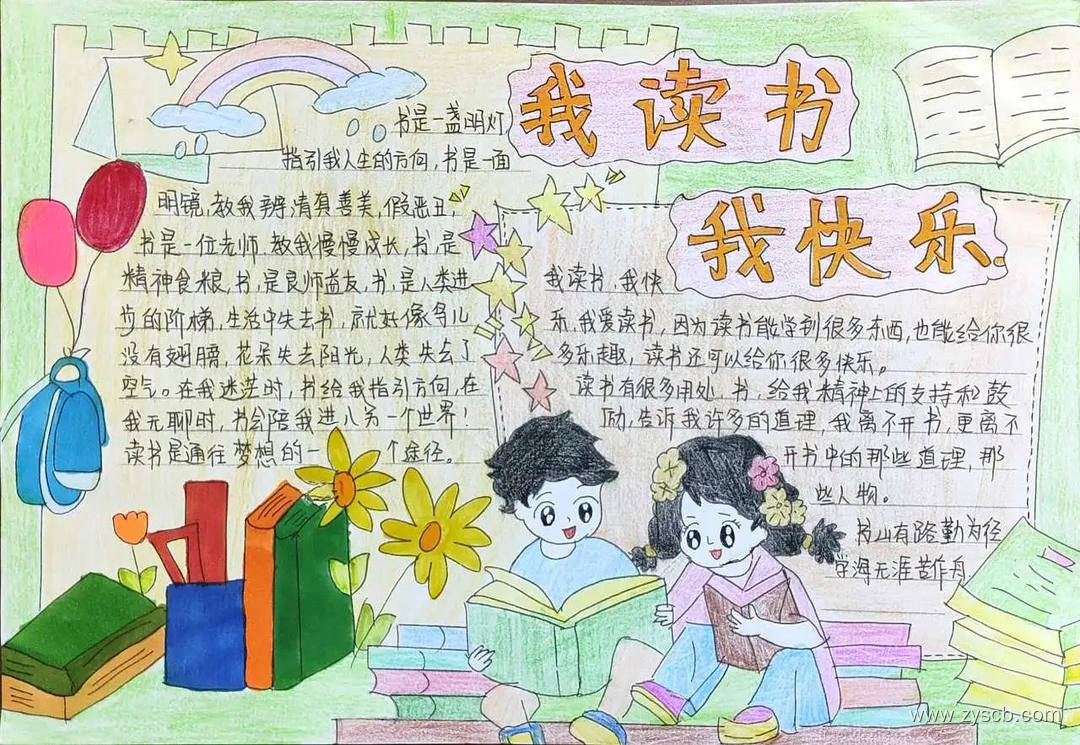 我读书
我快乐
书是一盏明灯
指引我人生的方向,书是一面
明镜,教我辨清真善美,假恶丑,
书是一位老师,教我慢慢成长,书,是
精神食粮,书,是良师益友,书,是人类进
步的阶梯,生活中失去书,就好像鸟儿
没有翅膀,花朵失去阳光,人类失去了
空气。在我迷茫时,书给我指引方向,在
我无聊时,书会陪我进入另一个世界!
读书是通往梦想的一个途径。
我读书,我快
乐,我爱读书,因为读书能学到很多东西,也能给你很
多乐趣,读书还可以给你很多快乐。
读书有很多用处,书,给我精神上的支持和鼓
励,告诉我许多的道理,我离不开书,更离不
开书中的那些道理,那
些人物。
书山有路勤为径
学海无涯苦作舟
www.zyscb.com